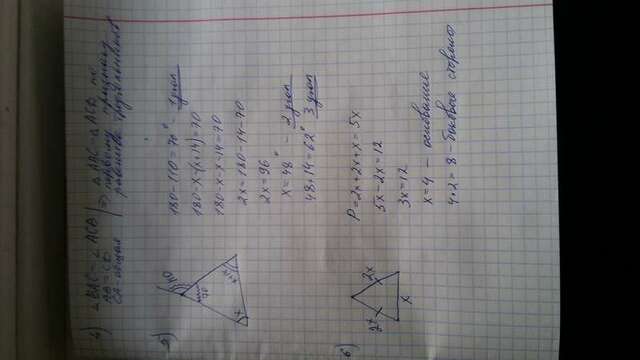 4) ∠BAC = ∠ACB
AB = CD
CA - общая
=> △AAC = △ACD по
первому признаку
равенства треугольников
5)
110
70
x
x+14
180-110=70° - 1 угол
180-x-(x+14)=70
180-x-x-14=70
2x=180-14-70
2x=96
x=48° - 2 угол
48+14=62° 3 угол
6)
2x
2x
x
P=2x+2x+x=5x
5x-2x=12
3x=12
x=4 - основание
4·2=8 - боковые стороны